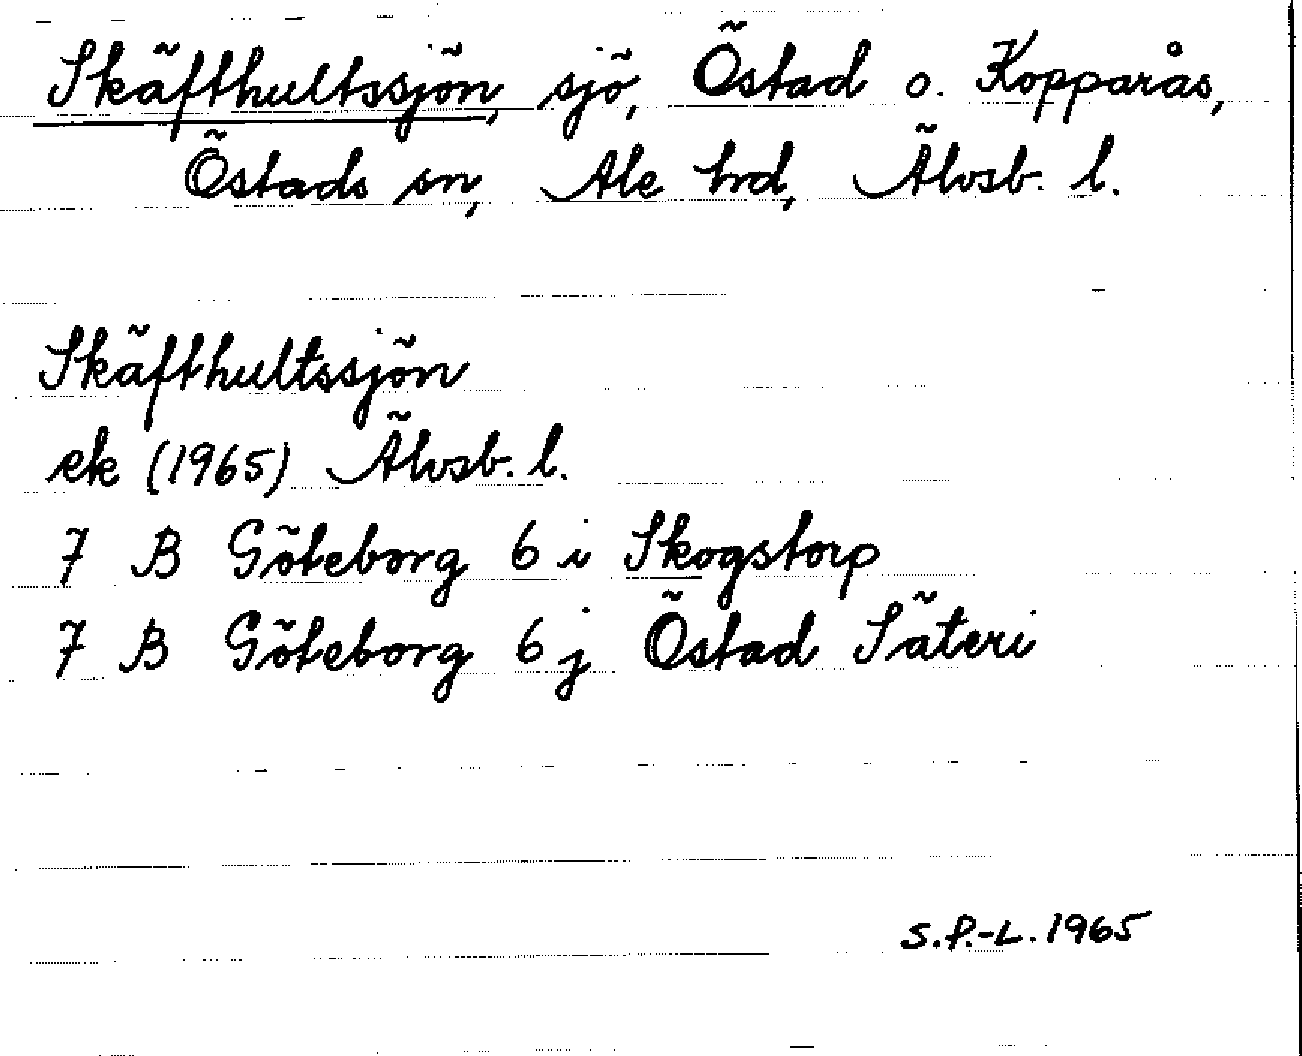 Skäfthultssjön, sjö, Östad o. Kopparås,
Östads sn, Ale hrd, Älvsb. l.
Skäfthultssjön
ek (1965) Älvsb. l.
7 B Göteborg 6 i Skogstorp
7 B Göteborg 6 j Östad Säteri
S.P.-L. 1965